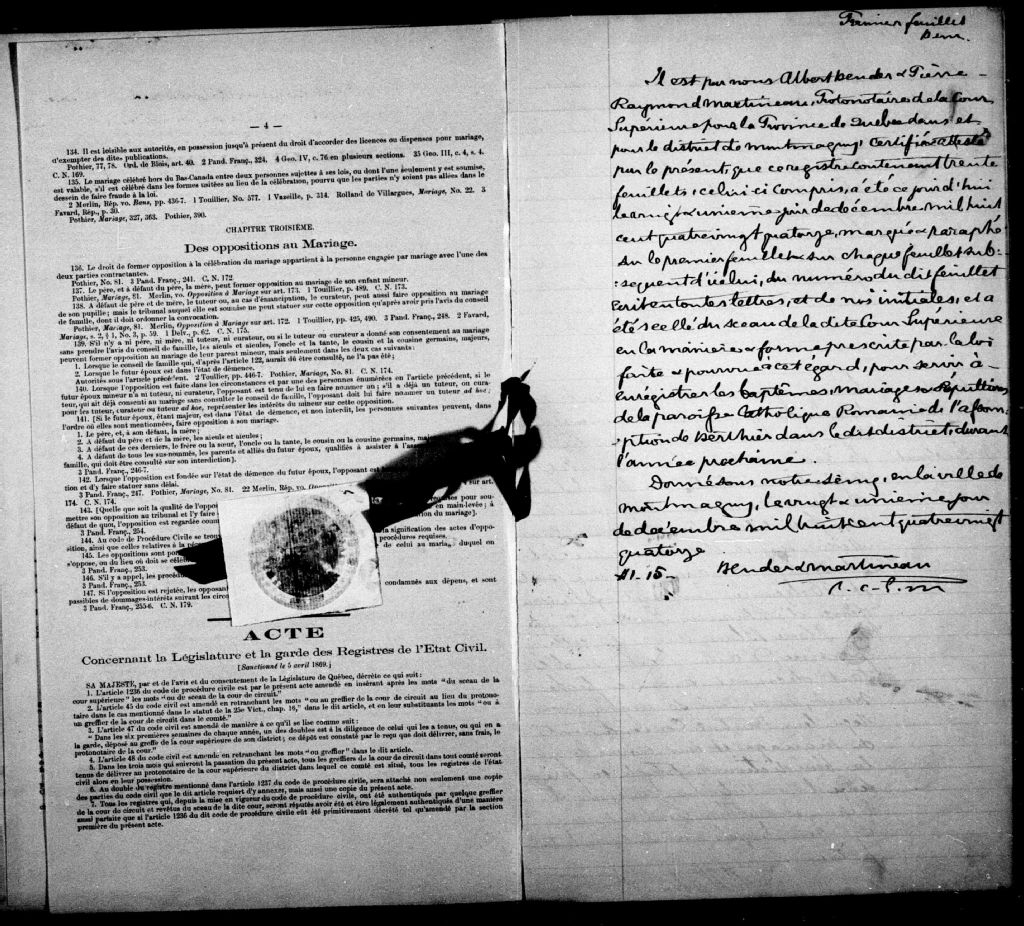 — 4 —
134. Il est loisible aux autorités, en possession jusqu'à présent du droit d'accorder des licences ou dispenses pour mariage,
d'exempter des dites publications.
Pothier, 77, 78. Ord. de Blois, art. 40. 2 Pand. Franç., 324. 4 Geo. IV, c. 76 en plusieurs sections. 35 Geo. III, c. 4, s. 4.
C. N. 169.
135. Le mariage célébré hors du Bas-Canada entre deux personnes sujettes à ses lois, ou dont l'une seulement y est soumise,
est valable, s'il est célébré dans les formes usitées au lieu de la célébration, pourvu que les parties n'y soient pas allées dans le
dessein de faire fraude à la loi.
2 Merlin, Rép. vo. Bans, pp. 436-7. 1 Touillier, No. 577. 1 Vazeille, p. 314. Rolland de Villargues, Mariage, No. 22. 3
Favard, Rép., p. 30.
Pothier, Mariage, 327, 363. Pothier, 390.
CHAPITRE TROISIÈME.
Des oppositions au Mariage.
136. Le droit de former opposition à la célébration du mariage appartient à la personne engagée par mariage avec l'une des
deux parties contractantes.
Pothier, No. 81. 3 Pand. Franç., 241. C. N. 172.
137. Le père, et à défaut du père, la mère, peut former opposition au mariage de son enfant mineur.
Pothier, Mariage, 81. Merlin, vo. Opposition à Mariage sur art. 173. 1 Touillier, p. 489. C. N. 173.
138. A défaut de père et de mère, le tuteur ou, au cas d'émancipation, le curateur, peut aussi faire opposition au mariage
de son pupille; mais le tribunal auquel elle est soumise ne peut statuer sur cette opposition qu'après avoir pris l'avis du conseil
de famille, dont il doit ordonner la convocation.
Pothier, Mariage, 81. Merlin, Opposition à Mariage sur art. 172. 1 Touillier, pp. 425, 490. 3 Pand. Franç., 248. 2 Favard,
Mariage, s. 2, § 1, No. 3, p. 59. 1 Delv., p. 62. C. N. 175.
139. S'il n'y a ni père, ni mère, ni tuteur, ni curateur, ou si le tuteur ou curateur a donné son consentement au mariage
sans prendre l'avis du conseil de famille, les aïeuls et aïeules, l'oncle et la tante, le cousin et la cousine germains, majeurs,
peuvent former opposition au mariage de leur parent mineur, mais seulement dans les deux cas suivants:
1. Lorsque le conseil de famille qui, d'après l'article 122, aurait dû être consulté, ne l'a pas été;
2. Lorsque le futur époux est dans l'état de démence.
Autorités sous l'article précédent. 2 Touillier, pp. 446-7. Pothier, Mariage, No. 81. C. N. 174.
140. Lorsque l'opposition est faite dans les circonstances et par une des personnes énumérées en l'article précédent, si le
futur époux mineur n'a ni tuteur, ni curateur, l'opposant est tenu de lui en faire nommer un; s'il a déjà un tuteur, ou cura-
teur, qui ait déjà consenti au mariage sans consulter le conseil de famille, l'opposant doit lui faire nommer un tuteur ad hoc;
pour les tuteur, curateur ou tuteur ad hoc, représenter les intérêts du mineur sur cette opposition.
141. [Si le futur époux, étant majeur, est dans l'état de démence, et non interdit, les personnes suivantes peuvent, dans
l'ordre où elles sont mentionnées, faire opposition à son mariage.
1. Le père, et, à son défaut, la mère;
2. A défaut du père et de la mère, les aïeuls et aïeules;
3. A défaut de ces derniers, le frère ou la sœur, l'oncle ou la tante, le cousin ou la cousine germains,
4. A défaut de tous les sus-nommés, les parents et alliés du futur époux, qualifiés à assister à
famille, qui doit être consulté sur son interdiction].
3 Pand. Franç., 246-7.
142. Lorsque l'opposition est fondée sur l'état de démence du futur époux, l'opposant est
tion et d'y faire statuer sans délai.
3 Pand. Franç., 247. Pothier, Mariage, No. 81. 22 Merlin, Rép. vo. sur art.
174. C. N. 174.
143. [Quelle que soit la qualité de l'opposant pour sou-
mettre son opposition au tribunal et l'y faire en main-levée; à
défaut de quoi, l'opposition est regardée comme du mariage].
3 Pand. Franç., 254.
144. Au code de Procédure Civile se la signification des actes d'oppo-
sition, ainsi que celles relatives à procédures requises.
145. Les oppositions sont de celui au duquel on
s'oppose, ou du lieu où doit se
3 Pand. Franç., 253.
146. S'il y a appel, les
3 Pand. Franç., 253.
147. Si l'opposition est rejetée, les condamnés aux dépens, et sont
passibles de dommages-intérêts suivant les
3 Pand. Franç., 255-6. C. N. 179.
ACTE
Concernant la Législature et la garde des Registres de l'Etat Civil.
[Sanctionné le 5 avril 1869.]
SA MAJESTÉ, par et de l'avis et du consentement de la Législature de Québec, décrète ce qui suit:
1. L'article 1236 du code de procédure civile est par le présent acte amendé en insérant après les mots "du sceau de la
cour supérieure" les mots "ou de sceau de la cour de circuit."
2. L'article 45 du code civil est amendé en retranchant les mots "ou au greffier de la cour de circuit au lieu du protono-
taire dans le cas mentionné dans le statut de la 25e Vict., chap. 16," dans le dit article, et en leur substituant les mots "ou à
un greffier de la cour de circuit dans le comté."
3. L'article 47 du code civil est amendé de manière à ce qu'il se lise comme suit:
" Dans les six premières semaines de chaque année, un des doubles est à la diligence de celui qui les a tenus, ou qui en a
la garde, déposé au greffe de la cour supérieure de son district; ce dépôt est constaté par le reçu que doit délivrer, sans frais, le
protonotaire de la cour."
4. L'article 48 du code civil est amendé en retranchant les mots "ou greffier" dans le dit article.
5. Dans les trois mois qui suivront la passation du présent acte, tous les greffiers de la cour de circuit dans tout comté seront
tenus de délivrer au protonotaire de la cour supérieure du district dans lequel ce comté est situé, tous les registres de l'état
civil alors en leur possession.
6. Au double du registre mentionné dans l'article 1237 du code de procédure civile, sera attaché non seulement une copie
des parties du code civil que le dit article requiert d'y annexer, mais aussi une copie du présent acte.
7. Tous les registres qui, depuis la mise en vigueur du code de procédure civile, ont été authentiqués par quelque greffier
de la cour de circuit et revêtus du sceau de la dite cour, seront réputés avoir été et être légalement authentiqués d'une manière
aussi parfaite que si l'article 1236 du dit code de procédure civile eût été primitivement décrété tel qu'amendé par la section
première du présent acte.
Premier feuillet
B & M.
Il est par nous Albert Bender & Pierre
Raymond Martineau, Protonotaire de la Cour
Supérieure pour la Province de Québec dans et
pour le district de Montmagny, certifié & attesté
par le présent, que ce registre contenant trente
feuillets, celui-ci compris, a été ce jour d'hui
le vingt & unième jour de décembre mil huit
cent quatre vingt quatorze, marqué & paraphé
sur le premier feuillet & sur chaque feuillet sub-
sequent d'icelui, du numéro du dit feuillet
écrit en toutes lettres, et de nos initiales, et a
été scellé du sceau de la dite Cour Supérieure
en la manière & forme prescrite par la loi
faite & pourvue à cet égard, pour servir à
enregistrer les baptêmes, mariages & sépultures
de la paroisse Catholique Romaine de l'Assom
ption de Berthier dans le dit district, durant
l'année prochaine.
Donné sous notre seing, en la ville de
Montmagny, le vingt & unième jour
de décembre mil huit cent quatre vingt
quatorze
Bender & Martineau
P. C. S. M